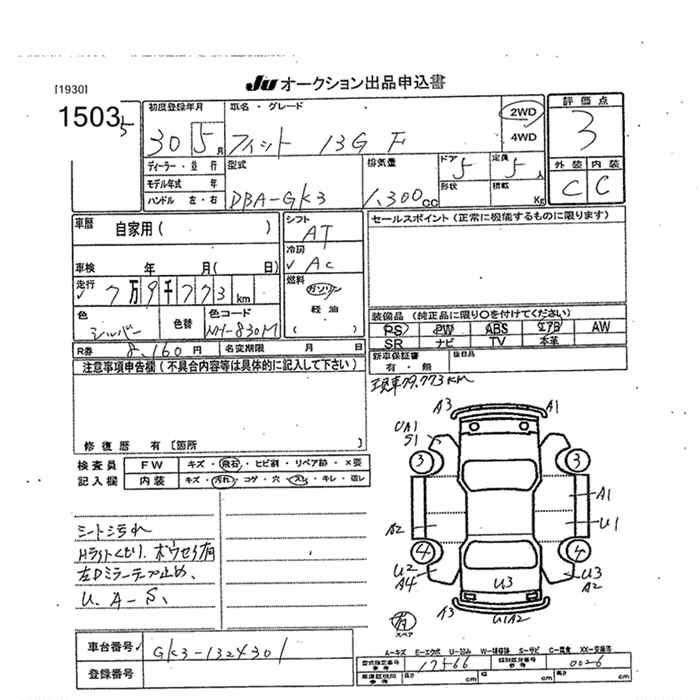 [1930]
JU オークション出品申込書
15035
初度登録年月
30 5月
車名・グレード
フィット 13G F
2WD
4WD
評価点
3
外装 内装
C C
ディーラー・並行
モデル年式 年
ハンドル 左・右
型式
DBA-GK3
排気量
1,300cc
ドア
5
定員
5人
形状
積載
Kg
車歴
自家用( )
車検 年 月( 日)
走行
7万9千773km
色
シルバー
色替
色コード
NH-830M
R券 8,160円
名変期限 月 日
シフト
AT
冷房
AC
燃料
ガソリン
軽油
( )
セールスポイント(正常に機能するものに限ります)
装備品(純正品に限り○を付けてください)
PS PW ABS エアB AW
SR ナビ TV 本革
新車保証書
有・無
後日品
現車79,773km
注意事項申告欄(不具合内容等は具体的に記入して下さい)
修復歴 有〔箇所 〕
検査員
記入欄
FW キズ・飛石・ヒビ割・リペア跡・×要
内装 キズ・汚れ・コゲ・穴・スレ・キレ・
シート汚れ
Hライトくもり、
左Dミラーテープ止め、
U、A-S、
A3 A1
UA1
S1
3 3
A1
A2 U1
4 4
U2
A4
U3
U3
A2
A3 U1A2
スペア
A-キズ E-エクボ U-凹み W-補修跡 S-サビ C-腐食 XX-交換済
車台番号 GK3-1324301
登録番号
型式指定番号
参考
17566
類別区分番号
参考
0026
車庫証明用
参考
長さ cm
幅 cm
高さ cm